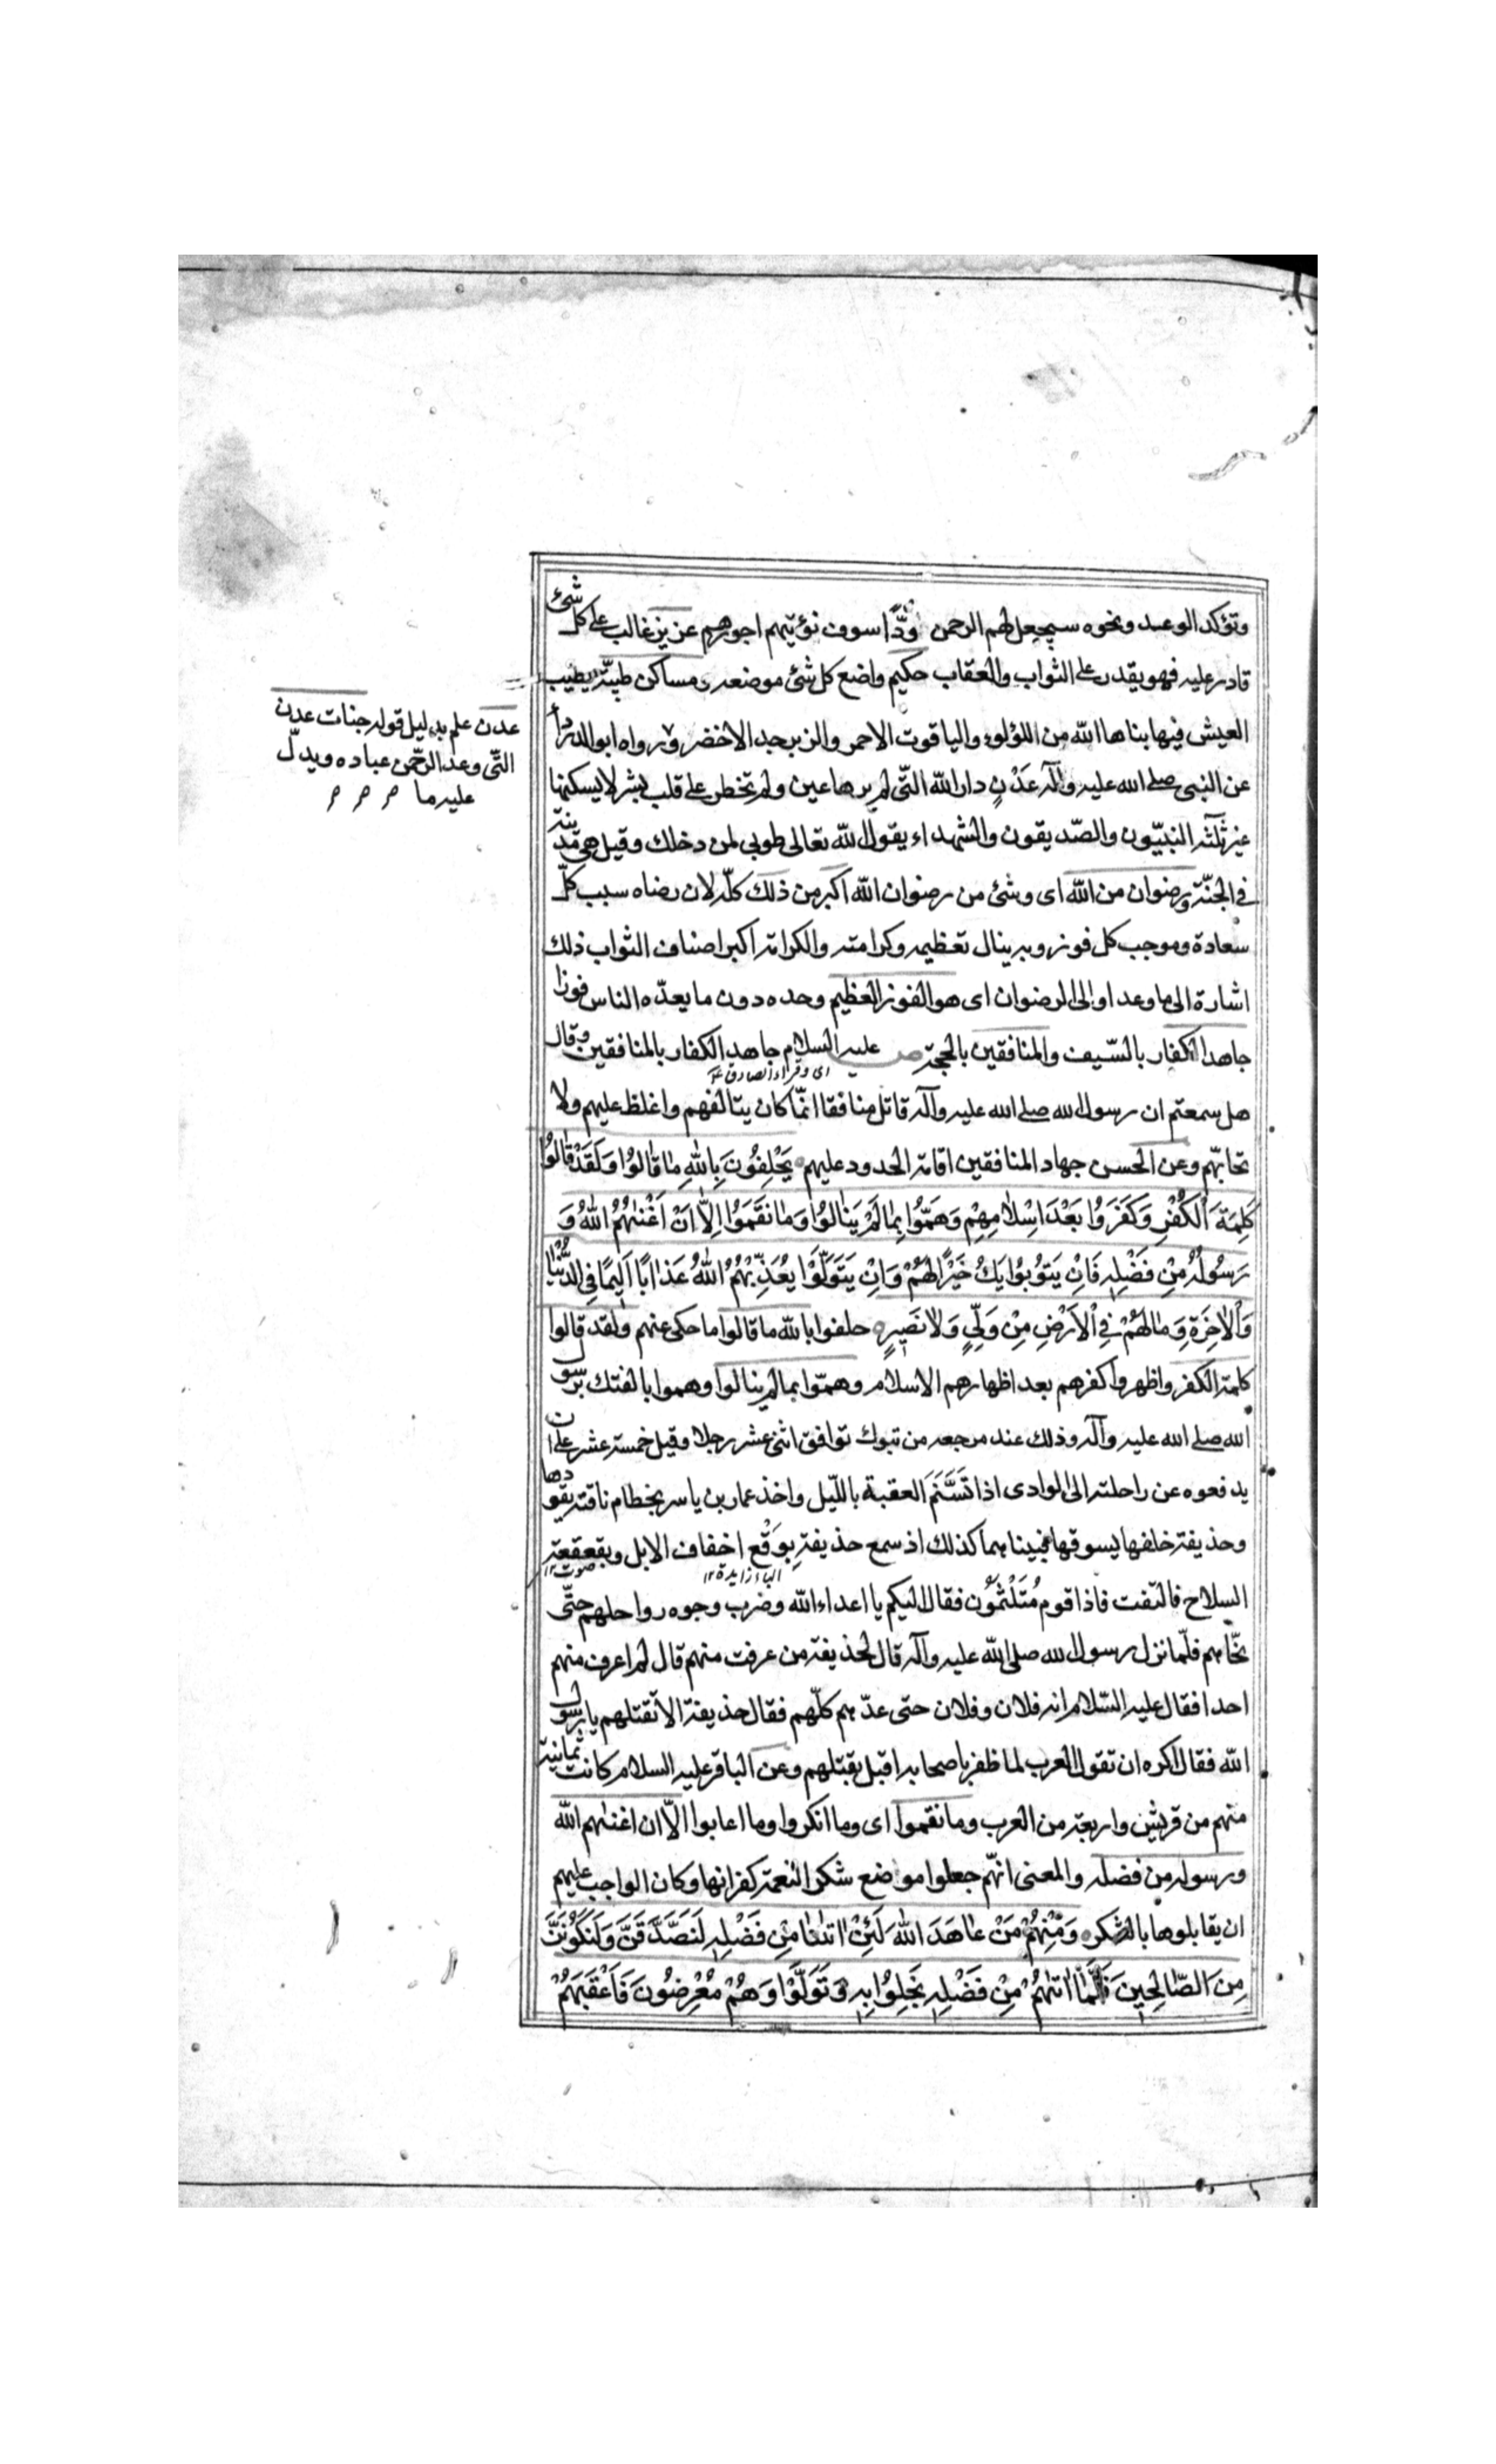 وتؤكد الوعيد ونحوه سيجعل لهم الرحمن ودّا سوف نؤتيهم اجورهم عزيز غالب على كل شئ
قادر عليه فهو يقدر على الثواب والعقاب حكيم واضع كل شئ موضعه ومساكن طيبّة يطيب
العيش فيها بناها الله من اللؤلوء والياقوت الاحمر والزبرجد الاخضر ورواه ابو الدرداء
عن النبى صلى الله عليه وآله عَدْنٍ دار الله التّى لم يرها عين ولم تخطر على قلب بشر لا يسكنها
غير ثلثة النبيّون والصّديقون والشهداء يقول الله تعالى طوبى لمن دخلك وقيل هى مدينة
فى الجنّة ورضوان من الله اى وشئ من رضوان الله اكبر من ذلك كلّه لان رضاه سبب كلّ
سعادة وموجب كل فوز وبه ينال تعظيمه وكرامته والكرامة اكبر اصناف الثواب ذلك
اشارة الى ما وعد او الى الرضوان اى هو الفوز العظيم وحده دون ما يعدّه الناس فوزا
جاهد الكفار بالسّيف والمنافقين بالحجة عليه السلام جاهد الكفار بالمنافقين وقال
اى وقراءة الصادق ع
هل سمعتم ان رسول الله صلى الله عليه وآله قاتل منافقا انّما كان يتالفهم واغلظ عليهم ولا
تحابّهم وعن الحسن جهاد المنافقين اقامة الحدود عليهم يَحْلِفُونَ بِاللهِ مٰا قٰالُوا وَلَقَدْ قٰالُوا
كَلِمَةَ الْكُفْرِ وَكَفَرُوا بَعْدَ اِسْلٰامِهِمْ وَهَمُّوا بِمٰا لَمْ يَنٰالُوا وَمٰا نَقَمُوا اِلّٰا اَنْ اَغْنٰيهُمُ اللهُ وَ
رَسُولُهُ مِنْ فَضْلِهِ فَاِنْ يَتُوبُوا يَكُ خَيْرًا لَهُمْ وَاِنْ يَتَوَلَّوْا يُعَذِّبْهُمُ اللهُ عَذٰابًا اَلِيمًا فِى الدُّنْيٰا
وَالْاٰخِرَةِ وَمٰا لَهُمْ فِى الْاَرْضِ مِنْ وَلِىٍّ وَلٰا نَصِيرٍ حلفوا بالله ما قالوا ما حكى عنهم ولقد قالوا
كلمة الكفر واظهروا كفرهم بعد اظهارهم الاسلام وهمّوا بما لم ينالوا وهموا بالفتك برسول
الله صلى الله عليه وآله وذلك عند مرجعه من تبوك توافق اثنى عشر رجلا وقيل خمسة عشر على ان
يدفعوه عن راحلته الى الوادى اذا تَسَنَّمَ العقبة بالليّل واخذ عمار بن ياسر بخطام ناقته يقودها
وحذيفة خلفها يسوقها فبينا هما كذلك اذ سمع حذيفة بِوَقْع اخفاف الابل وبقعقعة
الباء زايدة ١٢ صوت ١٢
السلاح فالتفت فاذا قوم مُتَلَثّمُون فقال اليكم يا اعداء الله وضرب وجوه رواحلهم حتّى
نحّاهم فلّما نزل رسول الله صلى الله عليه وآله قال لحذيفة من عرفت منهم قال لم اعرف منهم
احدا فقال عليه السّلام انه فلان وفلان حتى عدّ هم كلّهم فقال حذيفة الا تقتلهم يا رسول
الله فقال اكره ان تقول العرب لما ظفر باصحابه اقبل يقتلهم وعن الباقر عليه السلام كانت ثمانية
منهم من قريش واربعة من العرب وما نقموا اى وما انكروا وما اعابوا الّا ان اغنيهم الله
ورسوله من فضله والمعنى انهّم جعلوا مواضع شكر النعمة كفرانها وكان الواجب عليهم
ان يقابلوها بالشكر وَمِنْهُمْ مَنْ عٰاهَدَ اللهَ لَئِنْ اٰتٰنٰا مِنْ فَضْلِهِ لَنَصَّدَّقَنَّ وَلَنَكُونَنَّ
مِنَ الصّٰالِحِينَ فَلَمّٰا اٰتٰهُمْ مِنْ فَضْلِهِ بَخِلُوا بِهِ وَتَوَلَّوْا وَهُمْ مُعْرِضُونَ فَاَعْقَبَهُمْ
عدن علم بدليل قوله جنات عدن
التّى وعد الرحّمن عباده ويدلّ
عليه ما م م م